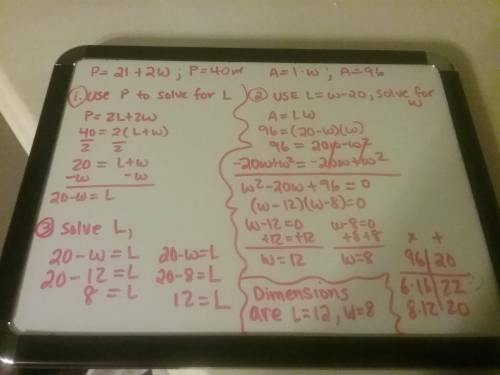 P=2l+2w; P=40m A=l·w; A=96
1. Use P to solve for L
P=2L+2W
40=2(L+w)
2 2
20 = L+w
-w -w
20-w=L
2 USE L=w-20, solve for w
A=LW
96=(20-w)(w)
96=20w-w²
-20w+w²=-20w+w²
w²-20w+96=0
(w-12)(w-8)=0
w-12=0 w-8=0
+12=+12 +8+8
w=12 w=8
3 Solve L,
20-w=L 20-w=L
20-12=L 20-8=L
8=L 12=L
Dimensions
are L=12, W=8
x +
96 20
6·16 22
8·12 20